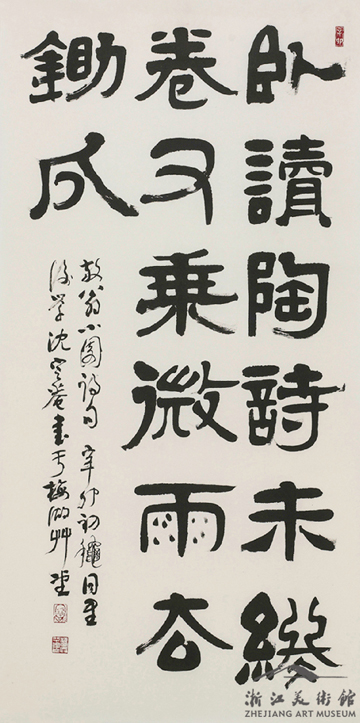 卧讀陶詩未終
卷又乘微雨去
鋤瓜
放翁小園詩句 辛卯初龝同里
後學沈定庵書于梅湖艸堂
浙江美術館
ZHEJIANG ART MUSEUM